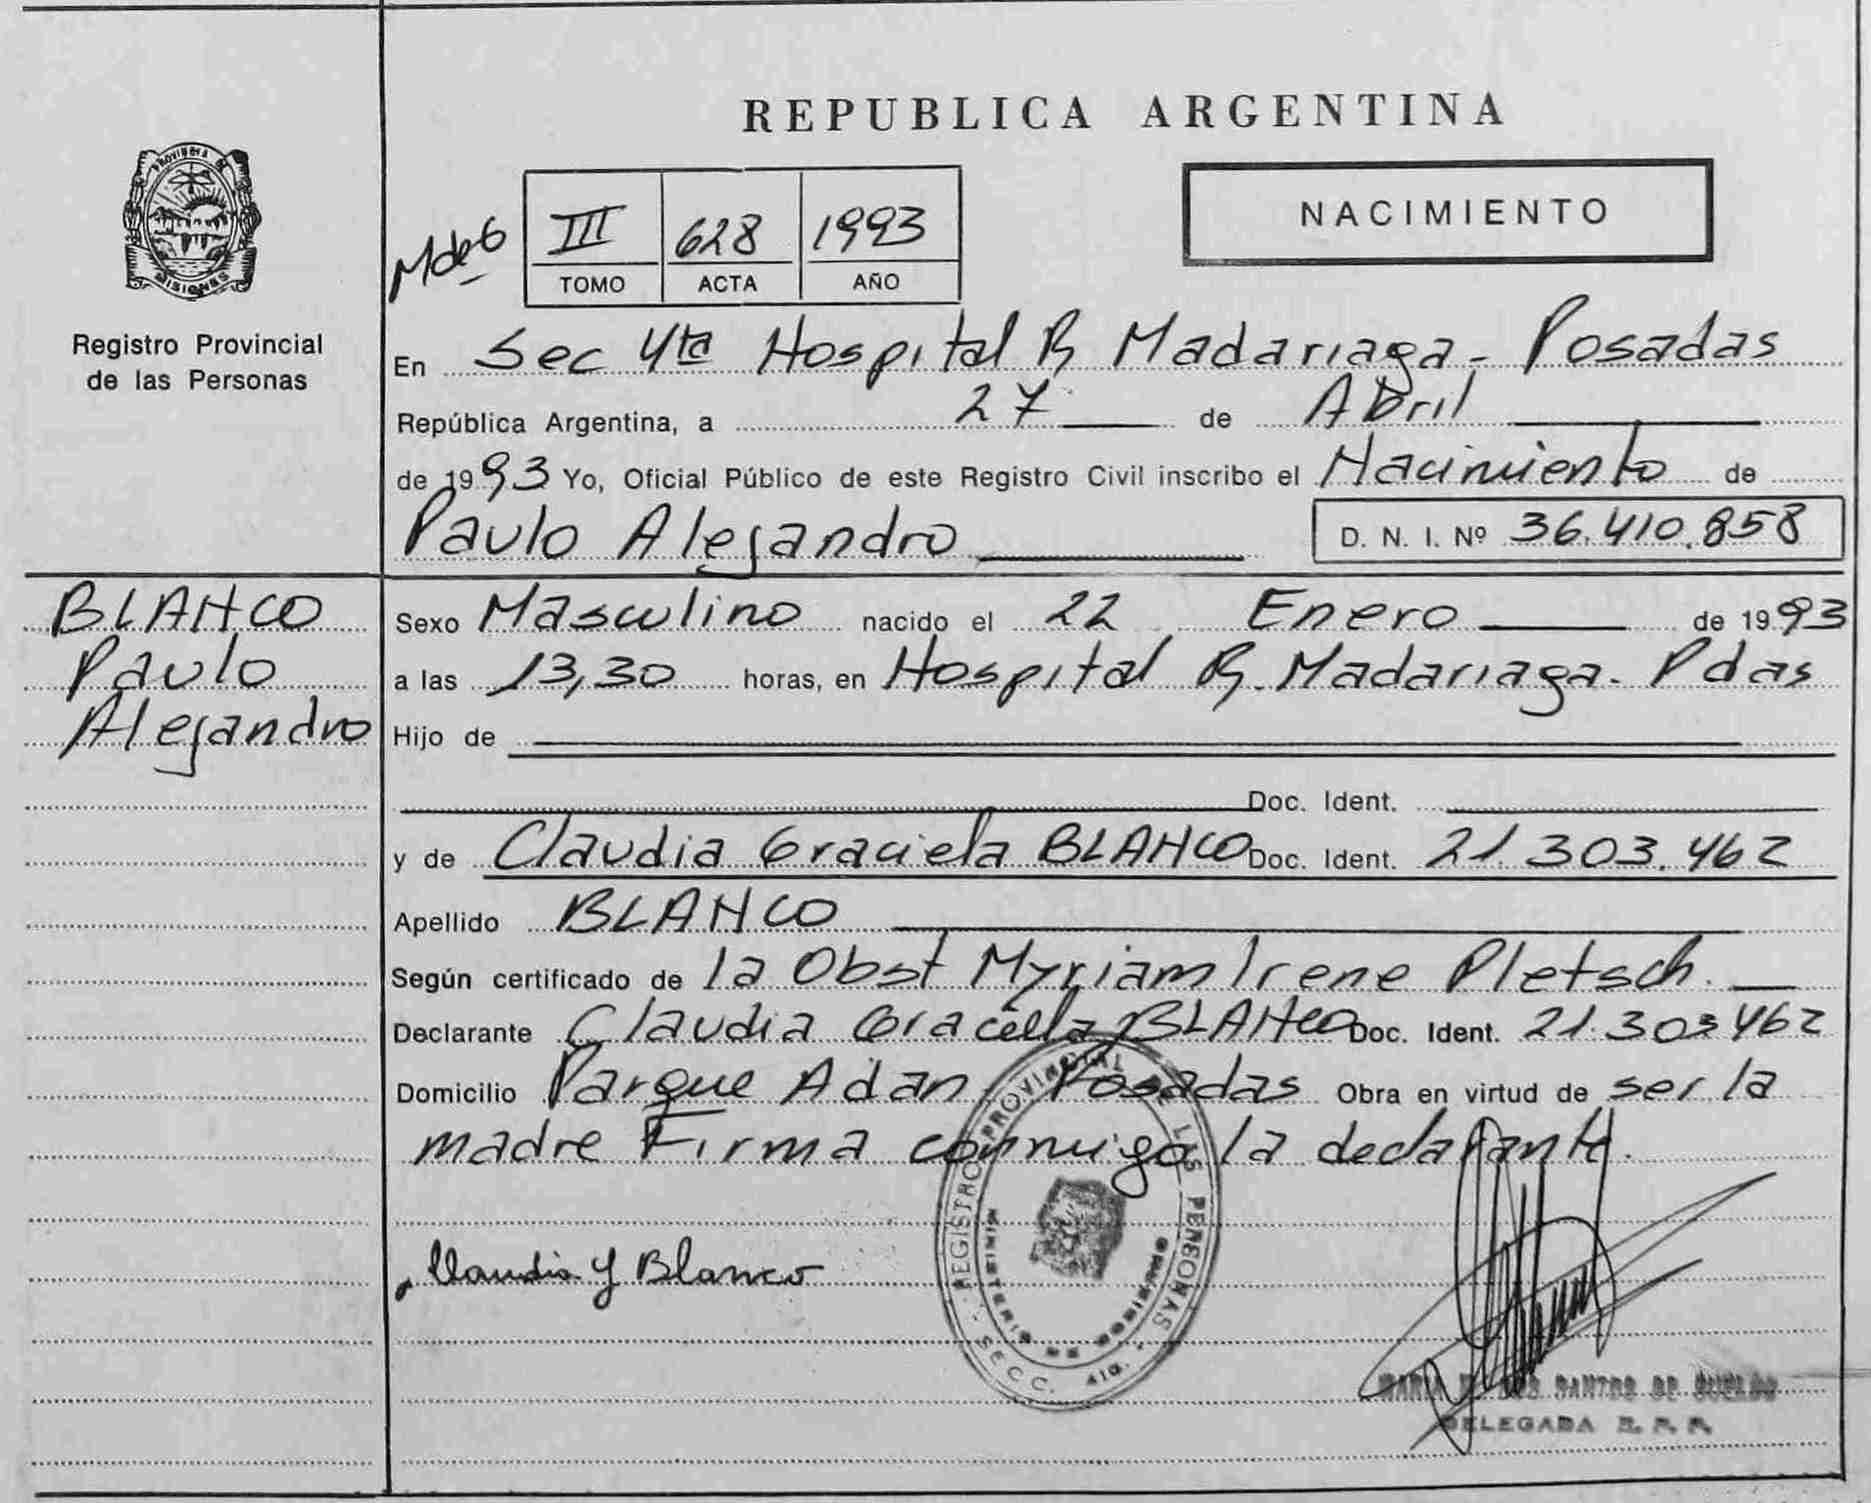 REPUBLICA ARGENTINA
PROVINCIA DE
MISIONES
Registro Provincial
de las Personas
NACIMIENTO
III 628 1993
TOMO ACTA AÑO
En Sec 4ta Hospital R Madariaga - Posadas
República Argentina, a 27 de Abril
de 1993 Yo, Oficial Público de este Registro Civil inscribo el Nacimiento de
Paulo Alejandro D. N. I. Nº 36.410.858
BLANCO
Paulo
Alejandro
Sexo Masculino nacido el 22 Enero de 1993
a las 13,30 horas, en Hospital R. Madariaga - Pdas
Hijo de
Doc. Ident.
y de Claudia Graciela BLANCO Doc. Ident. 21.303.462
Apellido BLANCO
Según certificado de la Obst Myriam Irene Pletsch.
Declarante Claudia Graciela BLANCO Doc. Ident. 21.303.462
Domicilio Parque Adan Posadas Obra en virtud de ser la
madre Firma conmigo la declarante.
REGISTRO PROVINCIAL DE LAS PERSONAS
MINISTERIO DE GOBIERNO
SECC. 4ta.
Claudia G Blanco
MARIA SANTOS DE
DELEGADA R. P. P.